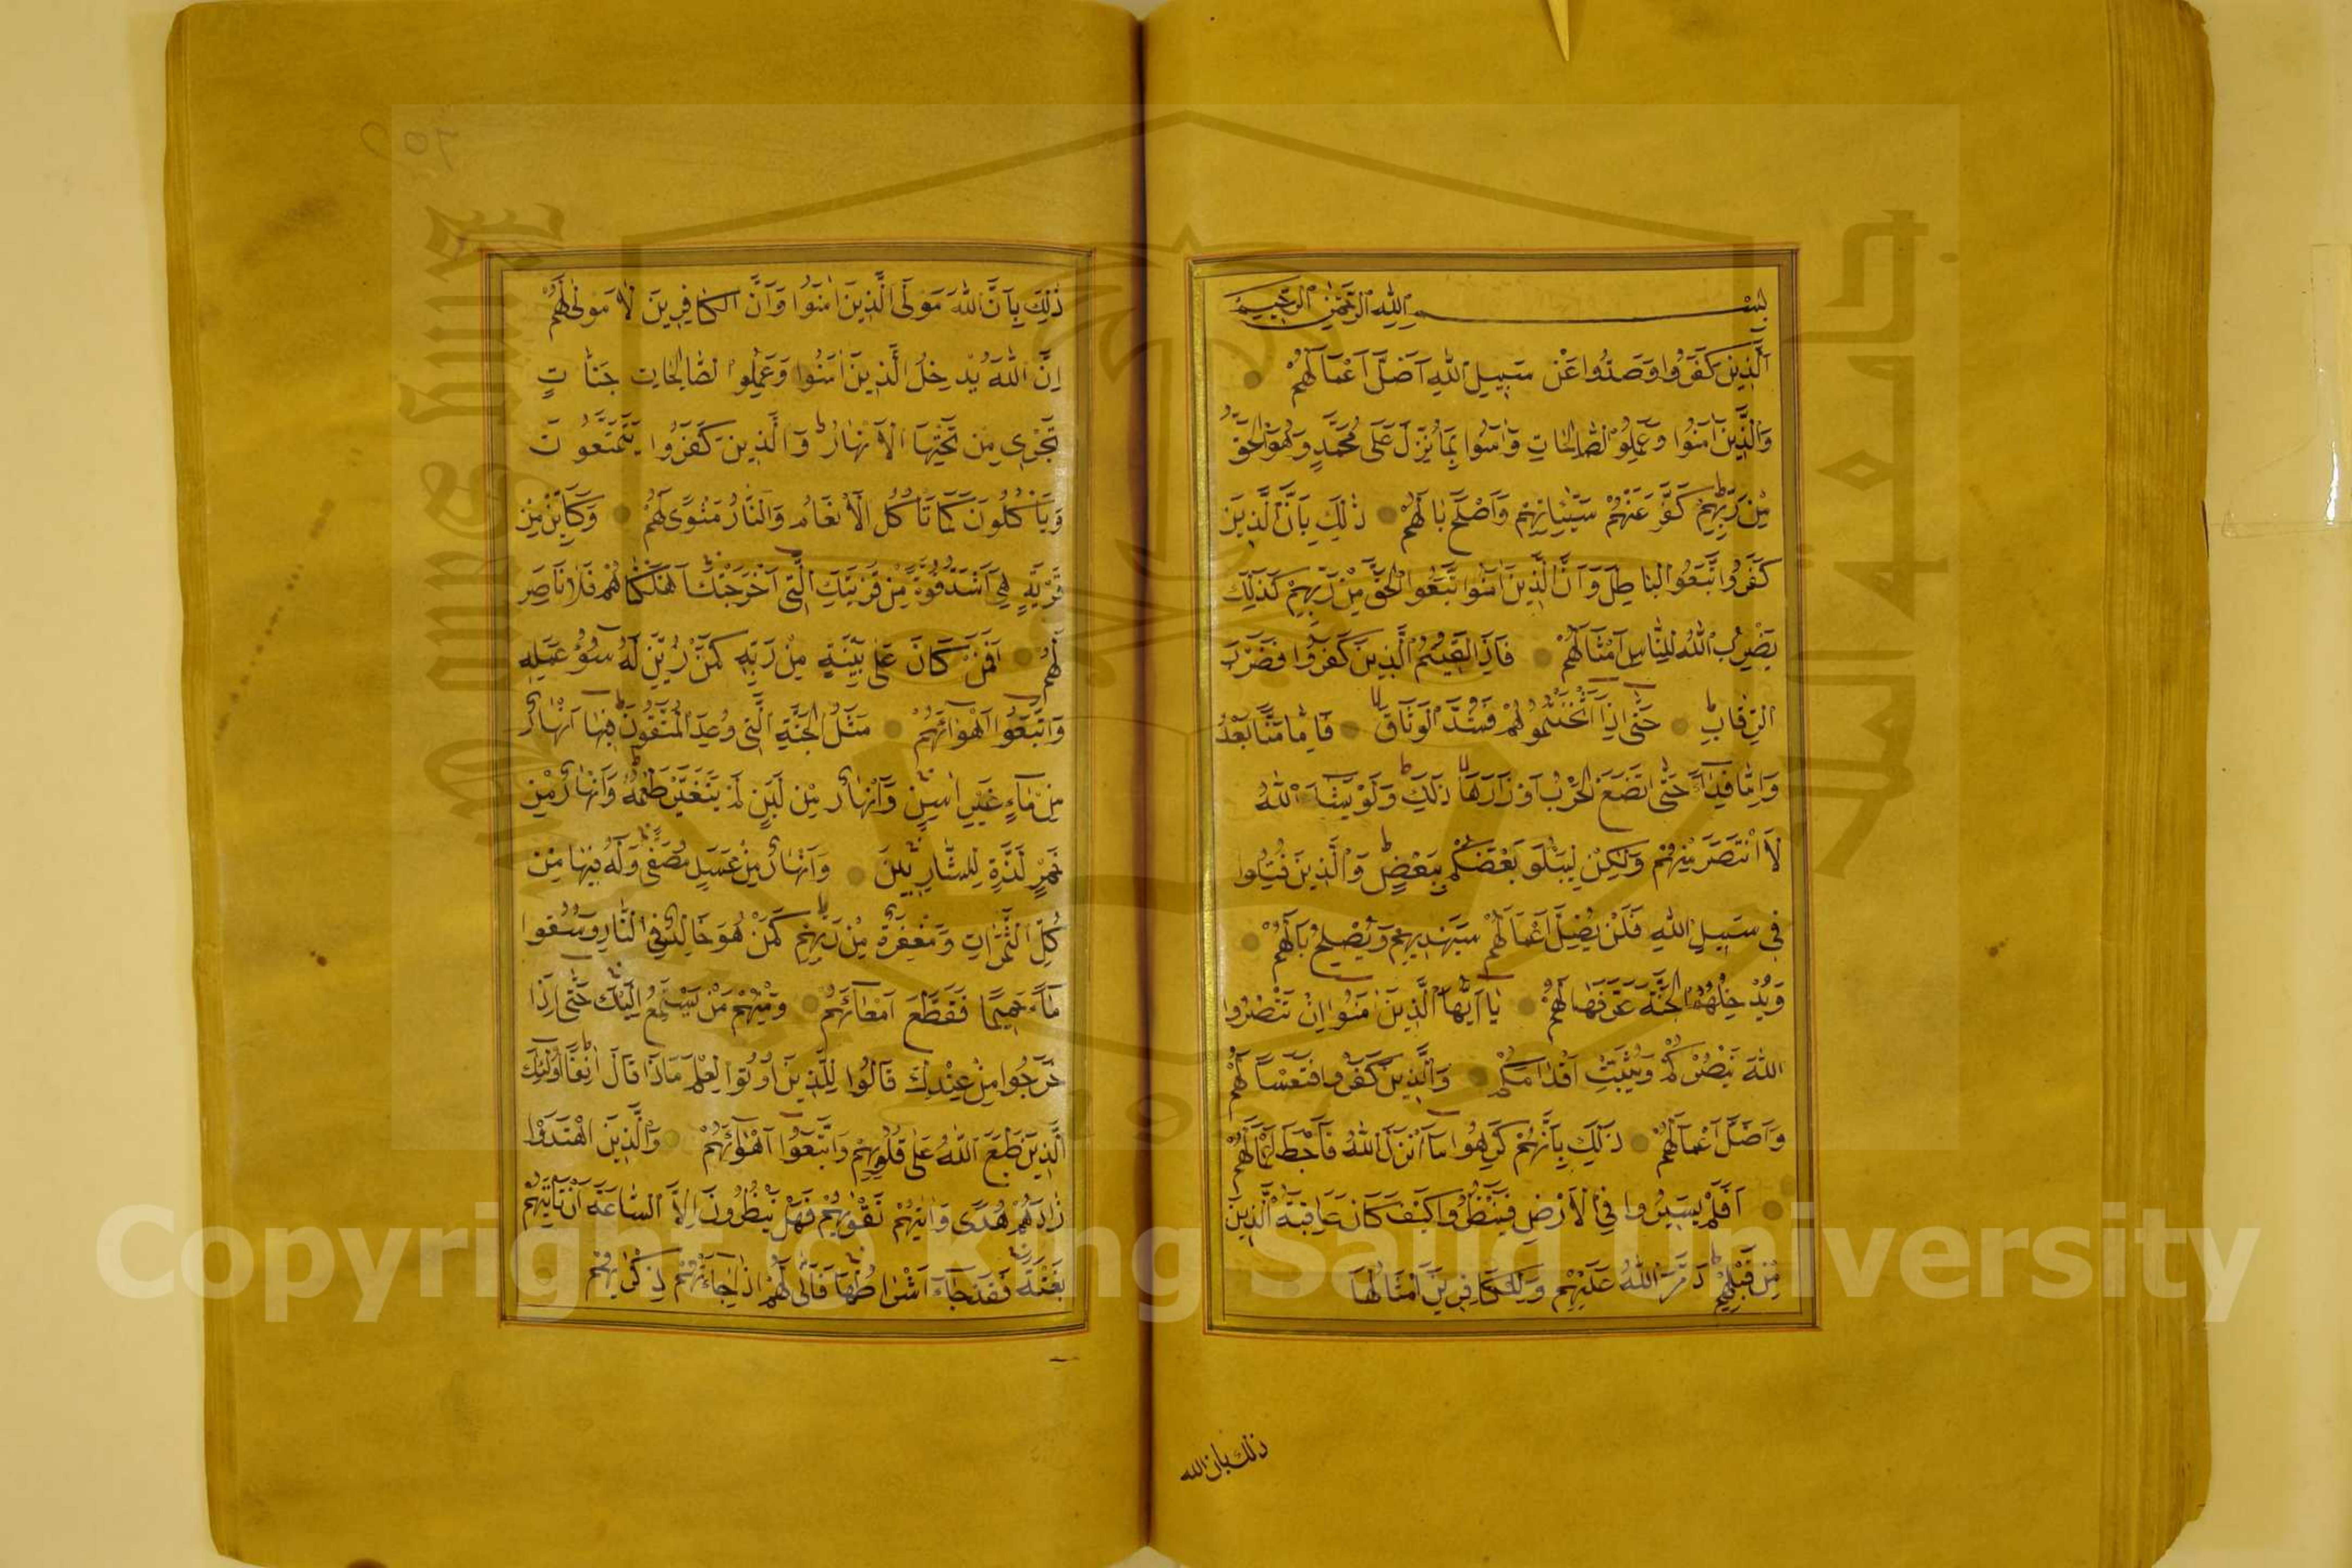 بِسْمِ اللّٰهِ الرَّحْمٰنِ الرَّحِيمِ
اَلَّذِينَ كَفَرُوا وَصَدُّوا عَنْ سَبِيلِ اللّٰهِ اَضَلَّ اَعْمَالَهُمْ
وَالَّذِينَ اٰمَنُوا وَعَمِلُوا الصَّالِحَاتِ وَاٰمَنُوا بِمَا نُزِّلَ عَلٰى مُحَمَّدٍ وَهُوَ الْحَقُّ
مِنْ رَبِّهِمْ كَفَّرَ عَنْهُمْ سَيِّئَاتِهِمْ وَاَصْلَحَ بَالَهُمْ ذٰلِكَ بِاَنَّ الَّذِينَ
كَفَرُوا اتَّبَعُوا الْبَاطِلَ وَاَنَّ الَّذِينَ اٰمَنُوا اتَّبَعُوا الْحَقَّ مِنْ رَبِّهِمْ كَذٰلِكَ
يَضْرِبُ اللّٰهُ لِلنَّاسِ اَمْثَالَهُمْ فَاِذَا لَقِيتُمُ الَّذِينَ كَفَرُوا فَضَرْبَ
الرِّقَابِ حَتّٰى اِذَا اَثْخَنْتُمُوهُمْ فَشُدُّوا الْوَثَاقَ فَاِمَّا مَنًّا بَعْدُ
وَاِمَّا فِدَاءً حَتّٰى تَضَعَ الْحَرْبُ اَوْزَارَهَا ذٰلِكَ وَلَوْ يَشَاءُ اللّٰهُ
لَانْتَصَرَ مِنْهُمْ وَلٰكِنْ لِيَبْلُوَ بَعْضَكُمْ بِبَعْضٍ وَالَّذِينَ قُتِلُوا
فِي سَبِيلِ اللّٰهِ فَلَنْ يُضِلَّ اَعْمَالَهُمْ سَيَهْدِيهِمْ وَيُصْلِحُ بَالَهُمْ
وَيُدْخِلُهُمُ الْجَنَّةَ عَرَّفَهَا لَهُمْ يَا اَيُّهَا الَّذِينَ اٰمَنُوا اِنْ تَنْصُرُوا
اللّٰهَ يَنْصُرْكُمْ وَيُثَبِّتْ اَقْدَامَكُمْ وَالَّذِينَ كَفَرُوا فَتَعْسًا لَهُمْ
وَاَضَلَّ اَعْمَالَهُمْ ذٰلِكَ بِاَنَّهُمْ كَرِهُوا مَا اَنْزَلَ اللّٰهُ فَاَحْبَطَ اَعْمَالَهُمْ
اَفَلَمْ يَسِيرُوا فِي الْاَرْضِ فَيَنْظُرُوا كَيْفَ كَانَ عَاقِبَةُ الَّذِينَ
مِنْ قَبْلِهِمْ دَمَّرَ اللّٰهُ عَلَيْهِمْ وَلِلْكَافِرِينَ اَمْثَالُهَا
ذلك بان الله
ذٰلِكَ بِاَنَّ اللّٰهَ مَوْلَى الَّذِينَ اٰمَنُوا وَاَنَّ الْكَافِرِينَ لَا مَوْلٰى لَهُمْ
اِنَّ اللّٰهَ يُدْخِلُ الَّذِينَ اٰمَنُوا وَعَمِلُوا الصَّالِحَاتِ جَنَّاتٍ
تَجْرِي مِنْ تَحْتِهَا الْاَنْهَارُ وَالَّذِينَ كَفَرُوا يَتَمَتَّعُونَ
وَيَاْكُلُونَ كَمَا تَاْكُلُ الْاَنْعَامُ وَالنَّارُ مَثْوًى لَهُمْ وَكَاَيِّنْ مِنْ
قَرْيَةٍ هِيَ اَشَدُّ قُوَّةً مِنْ قَرْيَتِكَ الَّتِي اَخْرَجَتْكَ اَهْلَكْنَاهُمْ فَلَا نَاصِرَ
لَهُمْ اَفَمَنْ كَانَ عَلٰى بَيِّنَةٍ مِنْ رَبِّهِ كَمَنْ زُيِّنَ لَهُ سُوءُ عَمَلِهِ
وَاتَّبَعُوا اَهْوَاءَهُمْ مَثَلُ الْجَنَّةِ الَّتِي وُعِدَ الْمُتَّقُونَ فِيهَا اَنْهَارٌ
مِنْ مَاءٍ غَيْرِ اٰسِنٍ وَاَنْهَارٌ مِنْ لَبَنٍ لَمْ يَتَغَيَّرْ طَعْمُهُ وَاَنْهَارٌ مِنْ
خَمْرٍ لَذَّةٍ لِلشَّارِبِينَ وَاَنْهَارٌ مِنْ عَسَلٍ مُصَفًّى وَلَهُمْ فِيهَا مِنْ
كُلِّ الثَّمَرَاتِ وَمَغْفِرَةٌ مِنْ رَبِّهِمْ كَمَنْ هُوَ خَالِدٌ فِي النَّارِ وَسُقُوا
مَاءً حَمِيمًا فَقَطَّعَ اَمْعَاءَهُمْ وَمِنْهُمْ مَنْ يَسْتَمِعُ اِلَيْكَ حَتّٰى اِذَا
خَرَجُوا مِنْ عِنْدِكَ قَالُوا لِلَّذِينَ اُوتُوا الْعِلْمَ مَاذَا قَالَ اٰنِفًا اُولٰئِكَ
الَّذِينَ طَبَعَ اللّٰهُ عَلٰى قُلُوبِهِمْ وَاتَّبَعُوا اَهْوَاءَهُمْ وَالَّذِينَ اهْتَدَوْا
زَادَهُمْ هُدًى وَاٰتٰيهُمْ تَقْوٰيهُمْ فَهَلْ يَنْظُرُونَ اِلَّا السَّاعَةَ اَنْ تَاْتِيَهُمْ
بَغْتَةً فَقَدْ جَاءَ اَشْرَاطُهَا فَاَنّٰى لَهُمْ اِذَا جَاءَتْهُمْ ذِكْرٰيهُمْ
Copyright © King Saud University